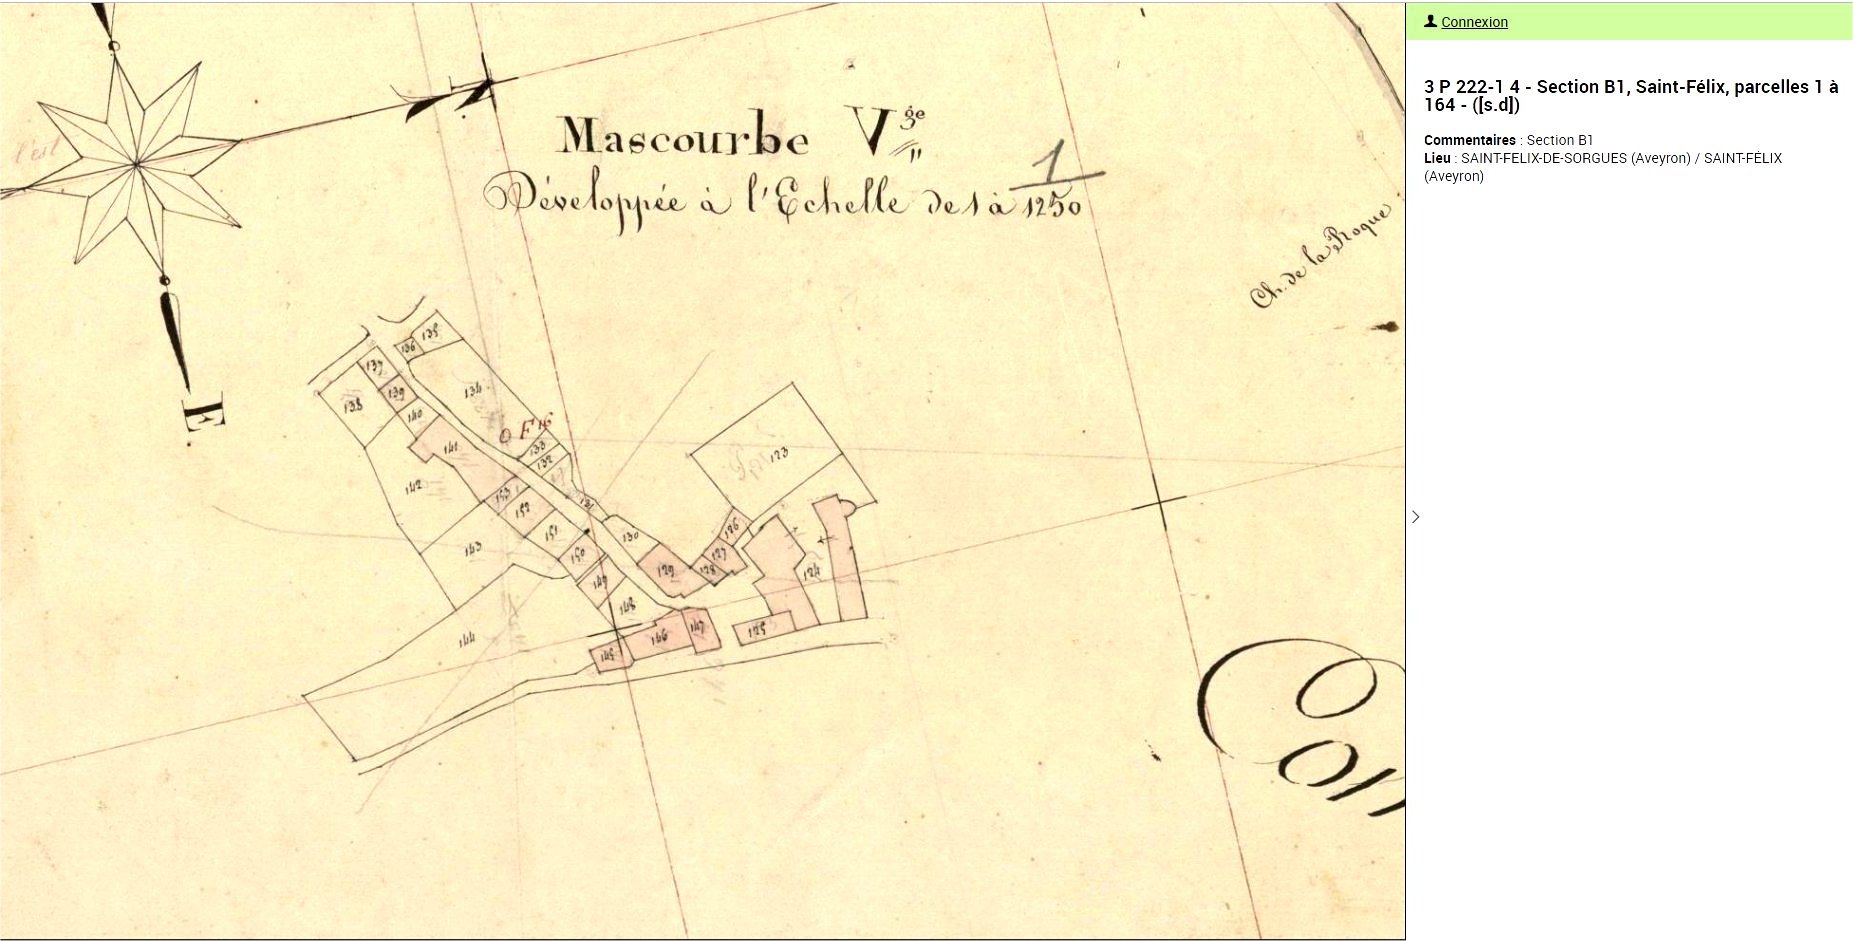 l'est
N
Mascourbe Vge
Développée à l'Echelle de 1 à 1/1250
Ch. de la Roque
E
O F 16
135
136
137
134
139
138
140
141
133
132
142
153
152
131
123
151
130
126
143
150
127
129
128
124
149
148
144
147
146
125
145
Com
Connexion
3 P 222-1 4 - Section B1, Saint-Félix, parcelles 1 à
164 - ([s.d])
Commentaires : Section B1
Lieu : SAINT-FELIX-DE-SORGUES (Aveyron) / SAINT-FÉLIX
(Aveyron)